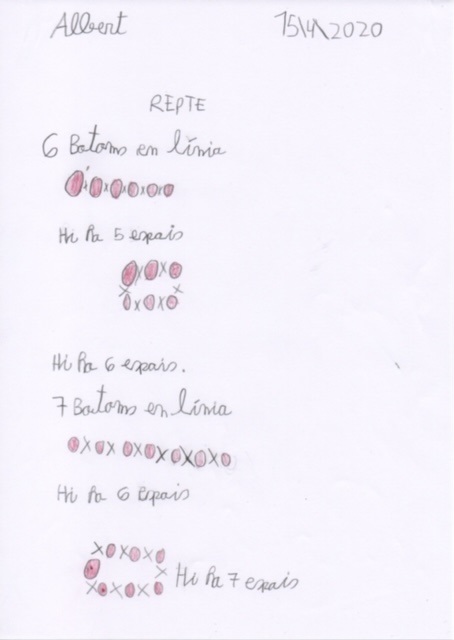 Albert 15\4\2020
REPTE
6 Botons en línia
Hi ha 5 espais
Hi ha 6 espais.
7 Botons en línia
Hi ha 6 Espais
Hi ha 7 espais